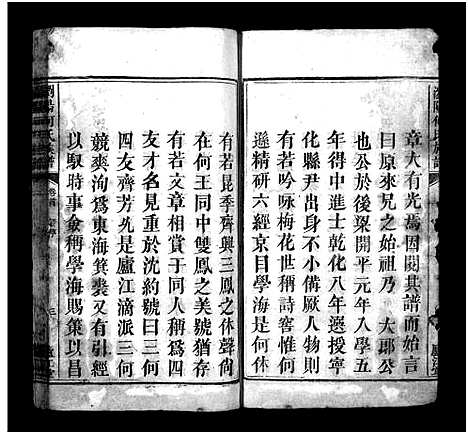 章大有光焉因閱其譜而始言
曰原來兄之始祖乃 大郎公
也公於後梁開平元年入學五
年得中進士乾化八年選授寧
化縣尹出身不小備厥人物則
有若吟咏梅花世稱詩窖惟何
遜精研六經京目學海是何休
有若昆季齊興三鳳之休聲尚
在何王同中雙鳳之美號猶存
有若文章相賞于同人稱爲四
友才名見重於沈約號曰三何
四友齊芳允是廬江滴派三何
競爽洵爲東海箕裘又有引經
以馭時事僉稱學海賜策以昌
瀏陽何氏族譜
卷首
三
廬江堂